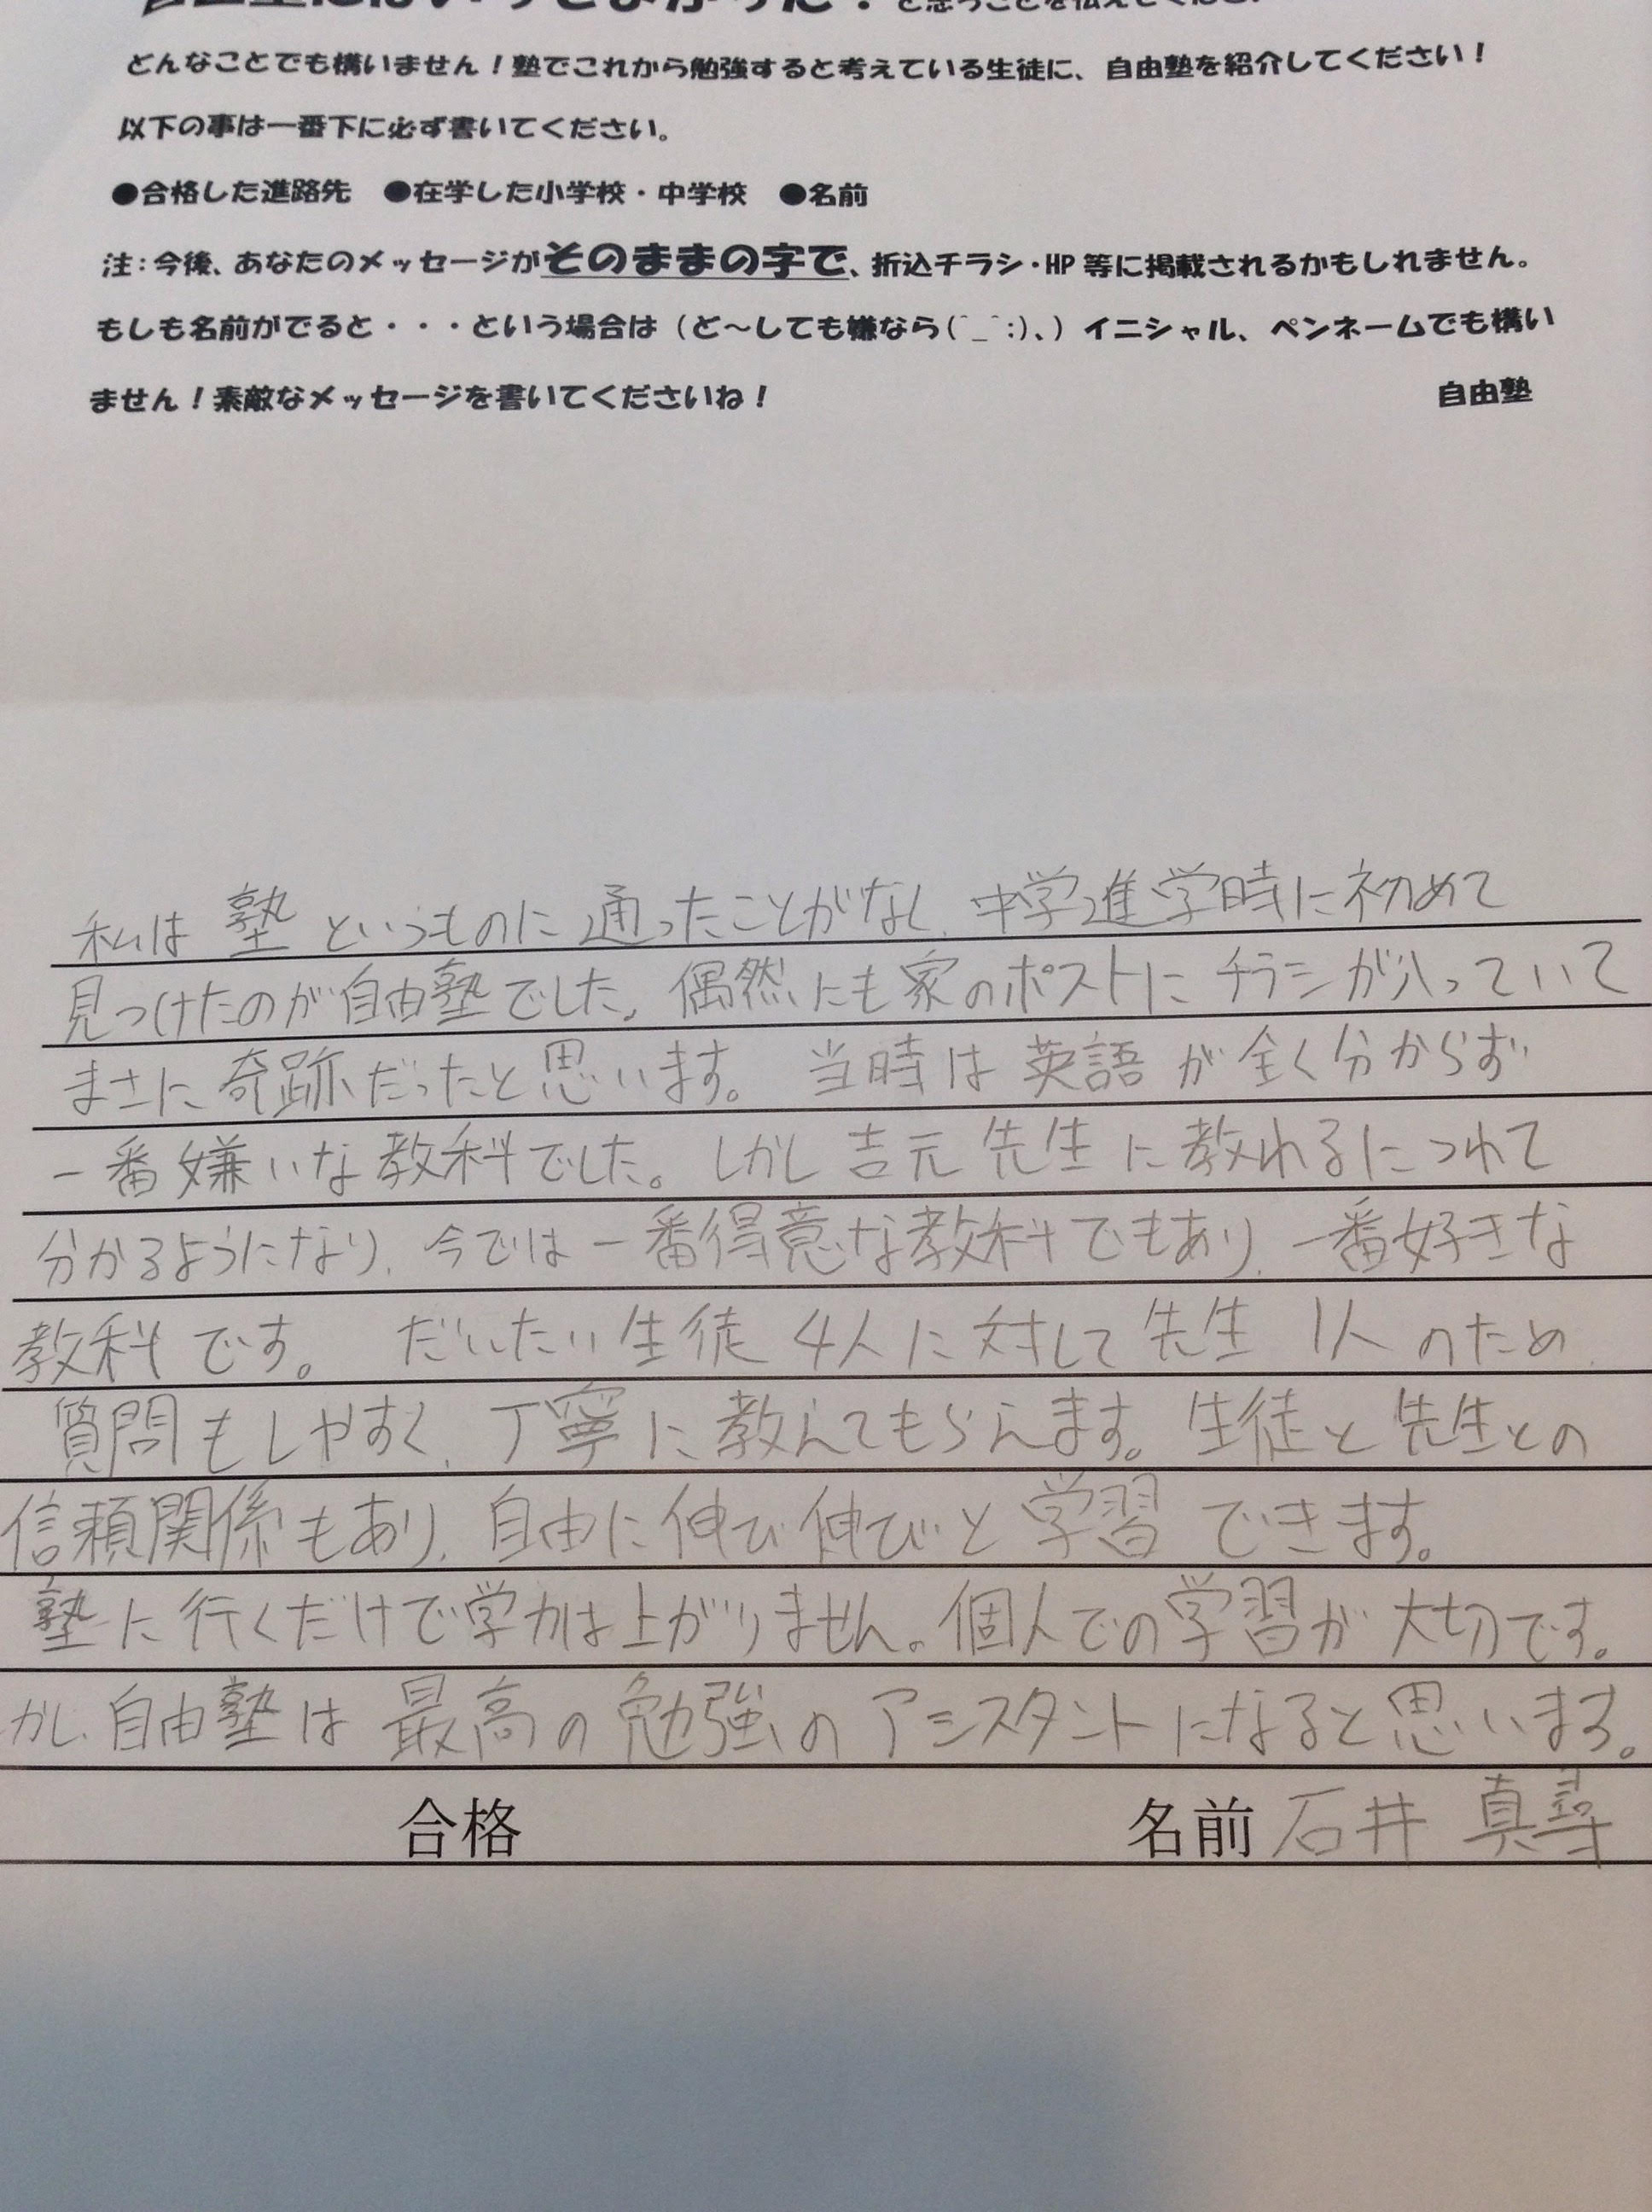 と思うことを伝えてください
どんなことでも構いません！塾でこれから勉強すると考えている生徒に、自由塾を紹介してください！
以下の事は一番下に必ず書いてください。
●合格した進路先　●在学した小学校・中学校　●名前
注：今後、あなたのメッセージがそのままの字で、折込チラシ・HP等に掲載されるかもしれません。
もしも名前がでると・・・という場合は（ど～しても嫌なら(^_^;)、）イニシャル、ペンネームでも構い
ません！素敵なメッセージを書いてくださいね！　自由塾
私は塾というものに通ったことがなし、中学進学時に初めて
見つけたのが自由塾でした。偶然にも家のポストにチラシが入っていて
まさに奇跡だったと思います。当時は英語が全く分からず
一番嫌いな教科でした。しかし吉元先生に教れるにつれて
分かるようになり、今では一番得意な教科でもあり、一番好きな
教科です。だいたい生徒4人に対して先生1人のため
質問もしやすく、丁寧に教えてもらえます。生徒と先生との
信頼関係もあり、自由に伸び伸びと学習できます。
塾に行くだけで学力は上がりません。個人での学習が大切です。
かし、自由塾は最高の勉強のアシスタントになると思います。
合格　名前 石井 真尋